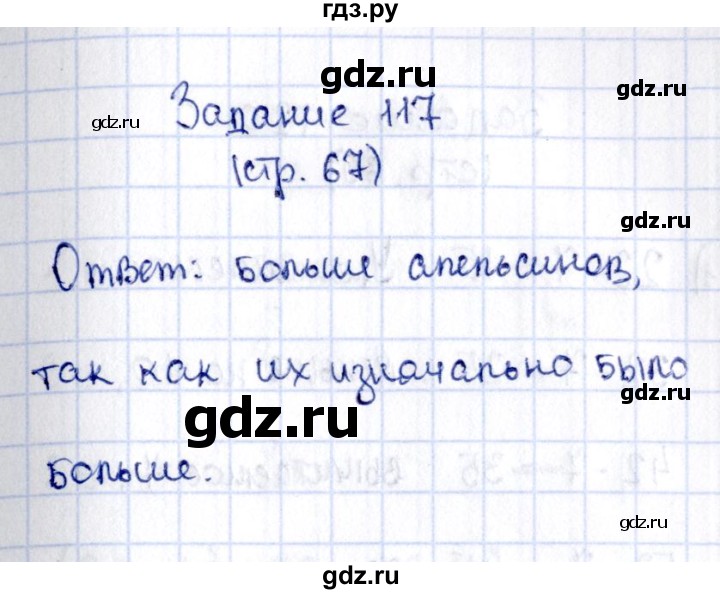 гдз.ру
gdz.ru
gdz.ru
gdz.ru
Задание 117
(стр. 67)
gdz.ru
Ответ: больше апельсинов,
так как их изначально было
gdz.ru
gdz.ru
больше.
gdz.ru
gdz.ru